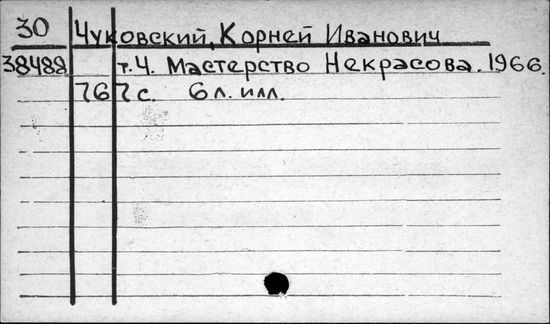 30 Чуковский, Корней Иванович
38488 т. 4. Мастерство Некрасова. 1966.
767 с. 6 л. илл.